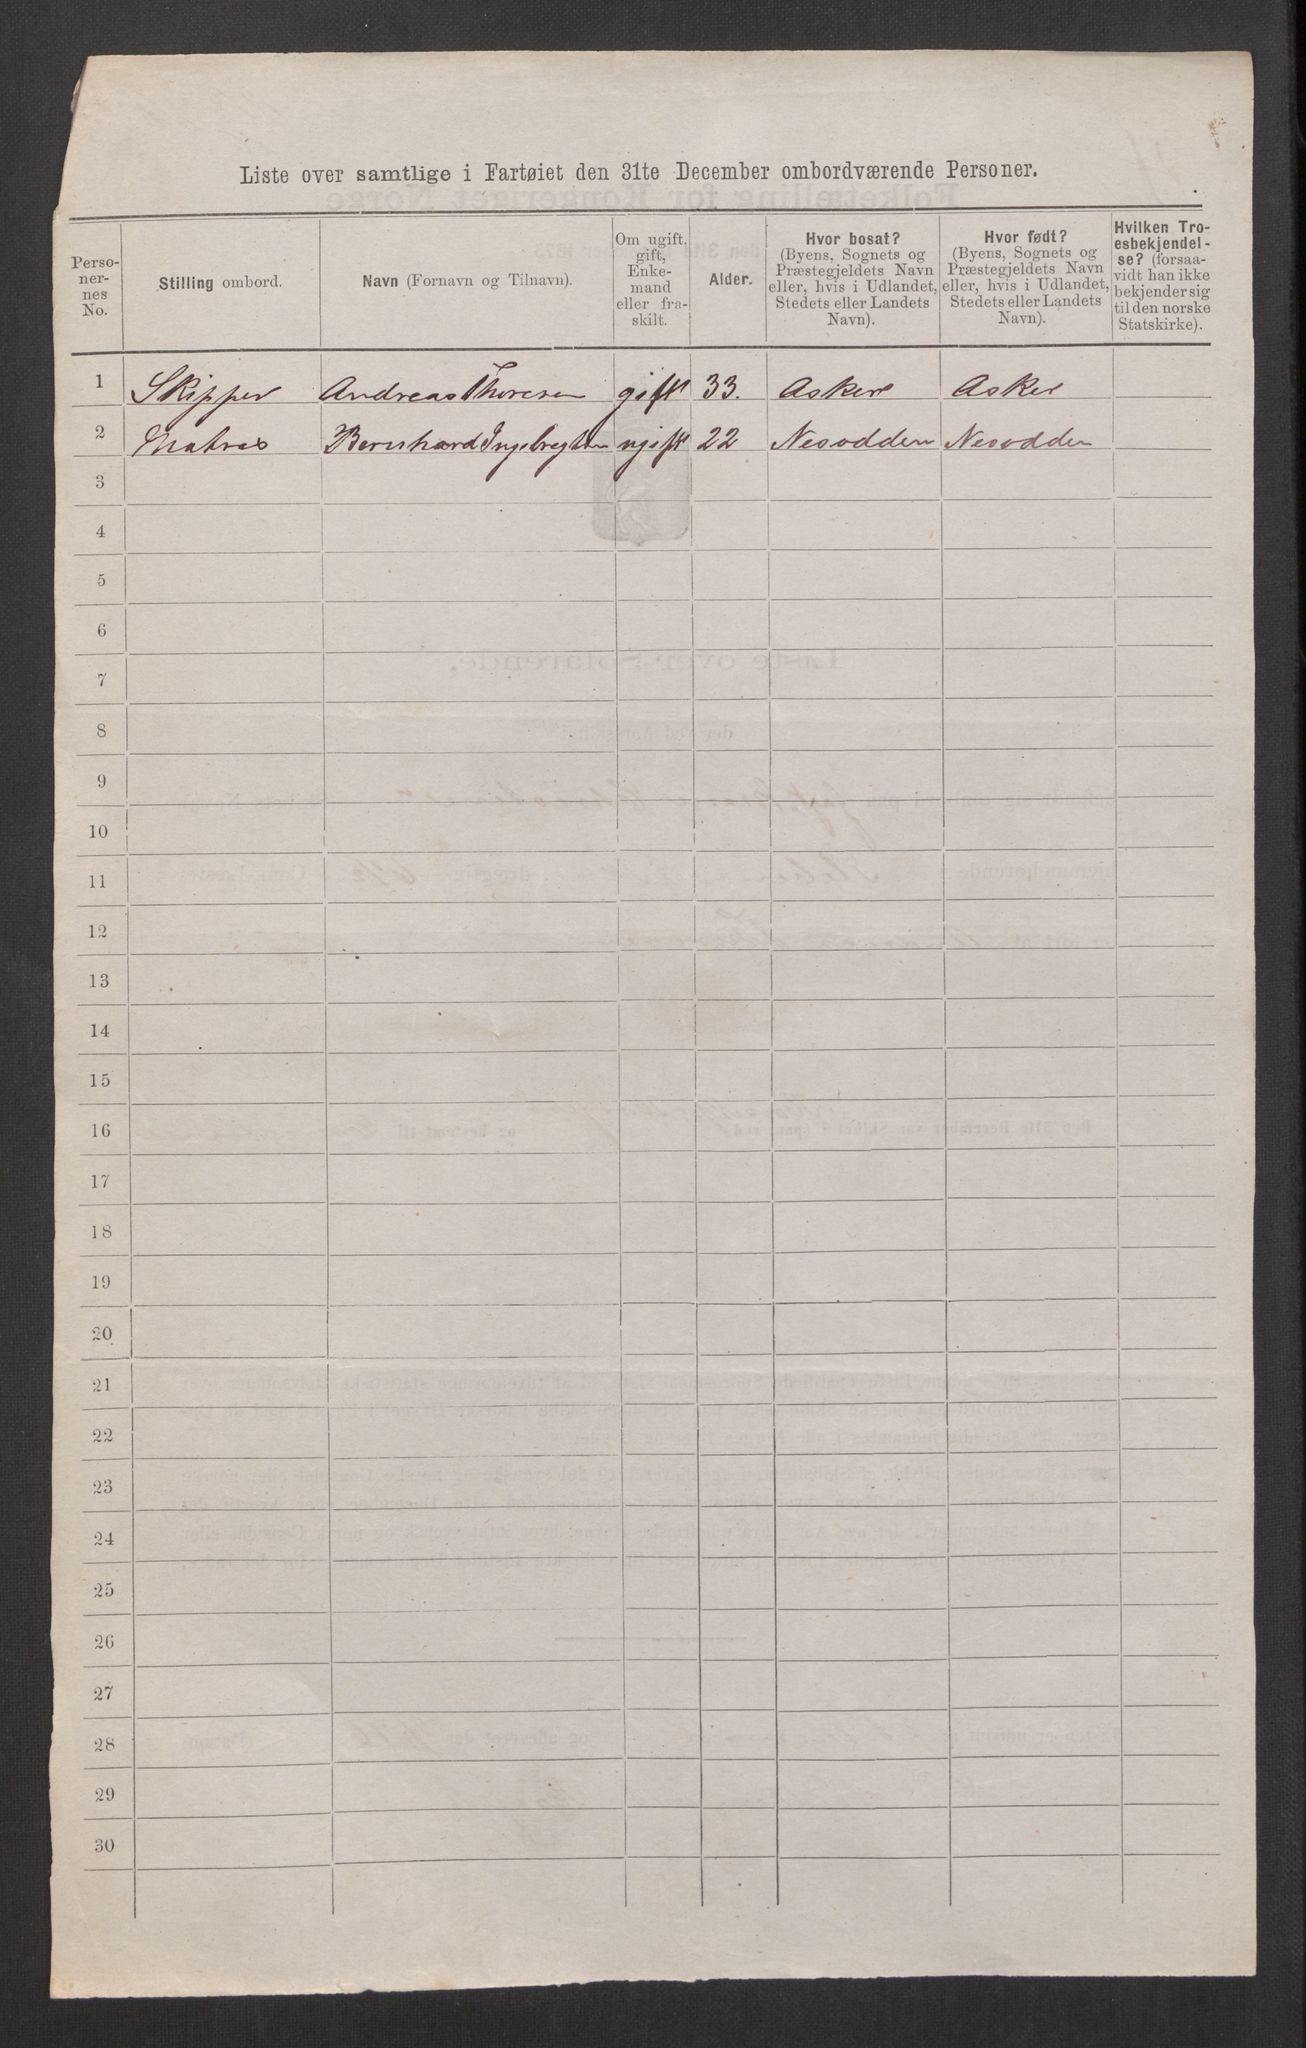 Liste over samtlige i Fartøiet den 31te December ombordværende Personer.
Perso-
ner-
nes
No.
Stilling ombord.
Navn (Fornavn og Tilnavn).
Om ugift,
gift,
Enke-
mand
eller fra-
skilt.
Alder.
Hvor bosat?
(Byens, Sognets og
Præstegjeldets Navn
eller, hvis i Udlandet,
Stedets eller Landets
Navn).
Hvor født?
(Byens, Sognets og
Præstegjeldets Navn
eller, hvis i Udlandet,
Stedets eller Landets
Navn).
Hvilken Tro-
esbekjendel-
se? (forsaa-
vidt han ikke
bekjender sig
til den norske
Statskirke).
1 Skipper Andreas Thoresen gift 33. Asker Asker
2 Matros Bernhard Ingebregtsen ugift 22 Nesodden Nesodden
3
4
5
6
7
8
9
10
11
12
13
14
15
16
17
18
19
20
21
22
23
24
25
26
27
28
29
30